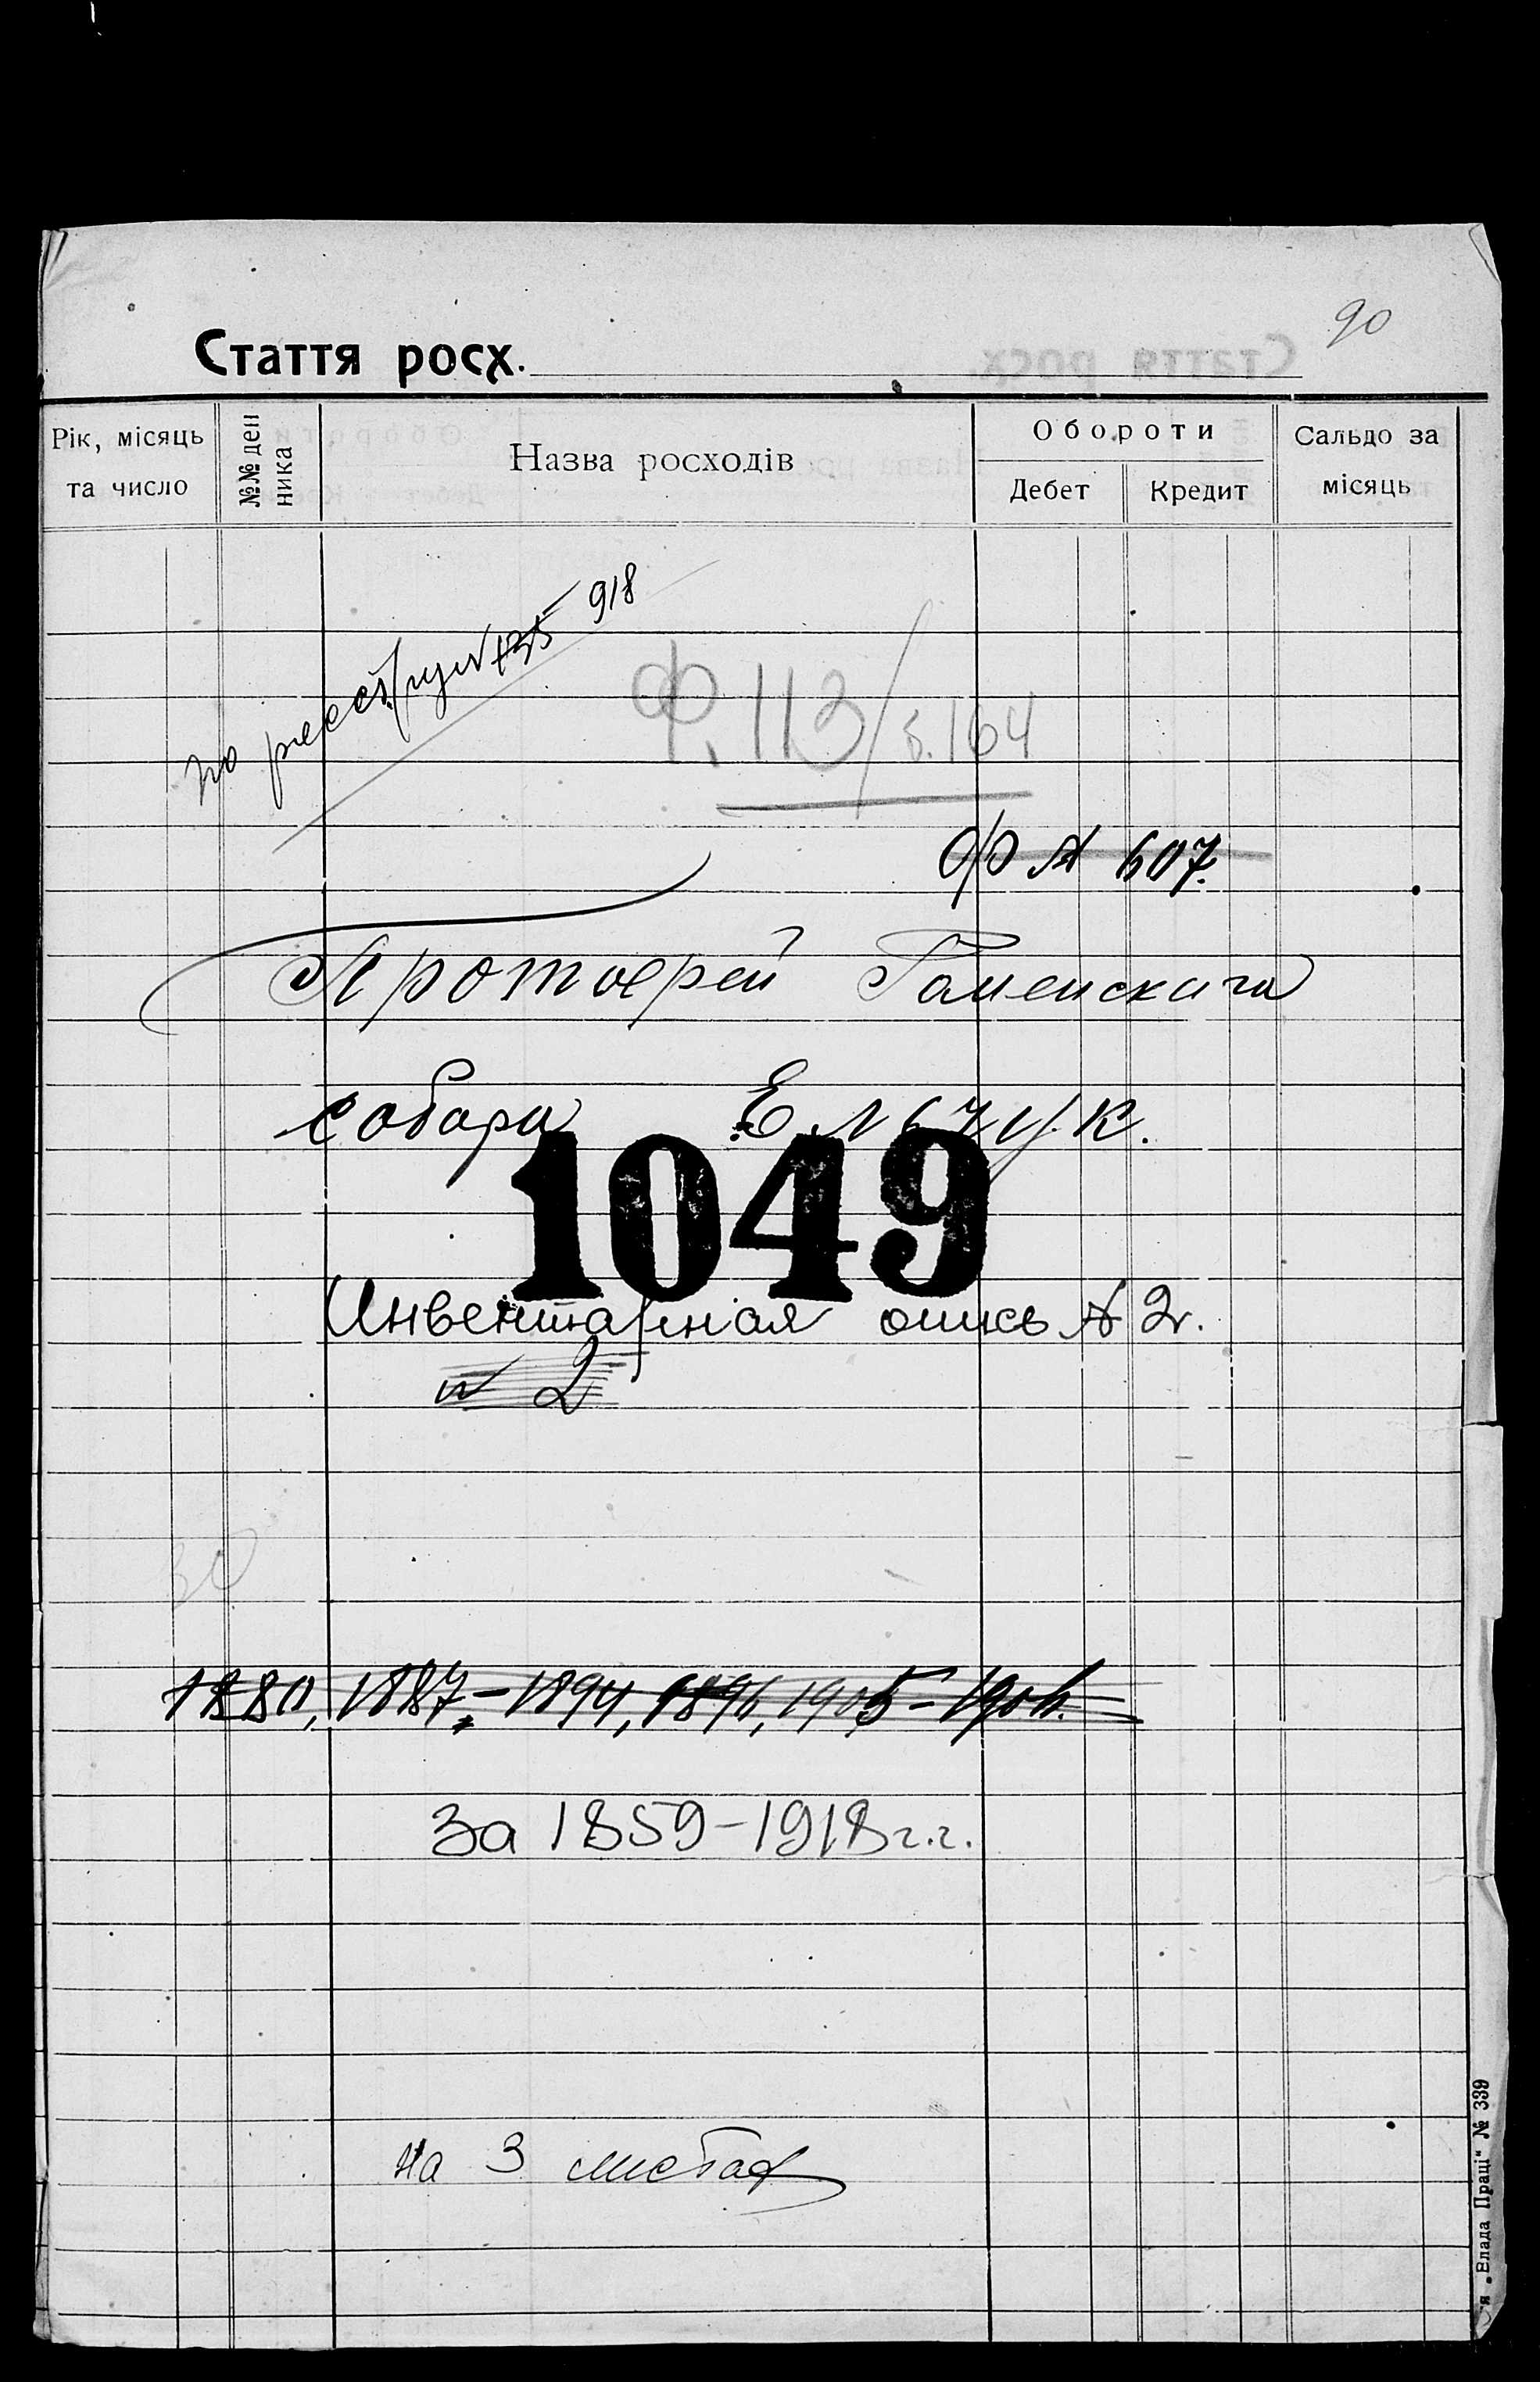 90
Стаття росх.
Рік, місяць та число
№№ денника
Назва росходів
Обороти
Дебет
Кредит
Сальдо за місяць
по реестру № 135 918
Ф. 113/б. 164
Ф № 607.
Протоерей Роменскаго
собора
1049
Инвентарная опись № 2.
№ 2
30
1880, 1887-1894, 1896, 1905-1906.
За 1859-1918 г.г.
на 3 листах
"Влада Праці" № 339